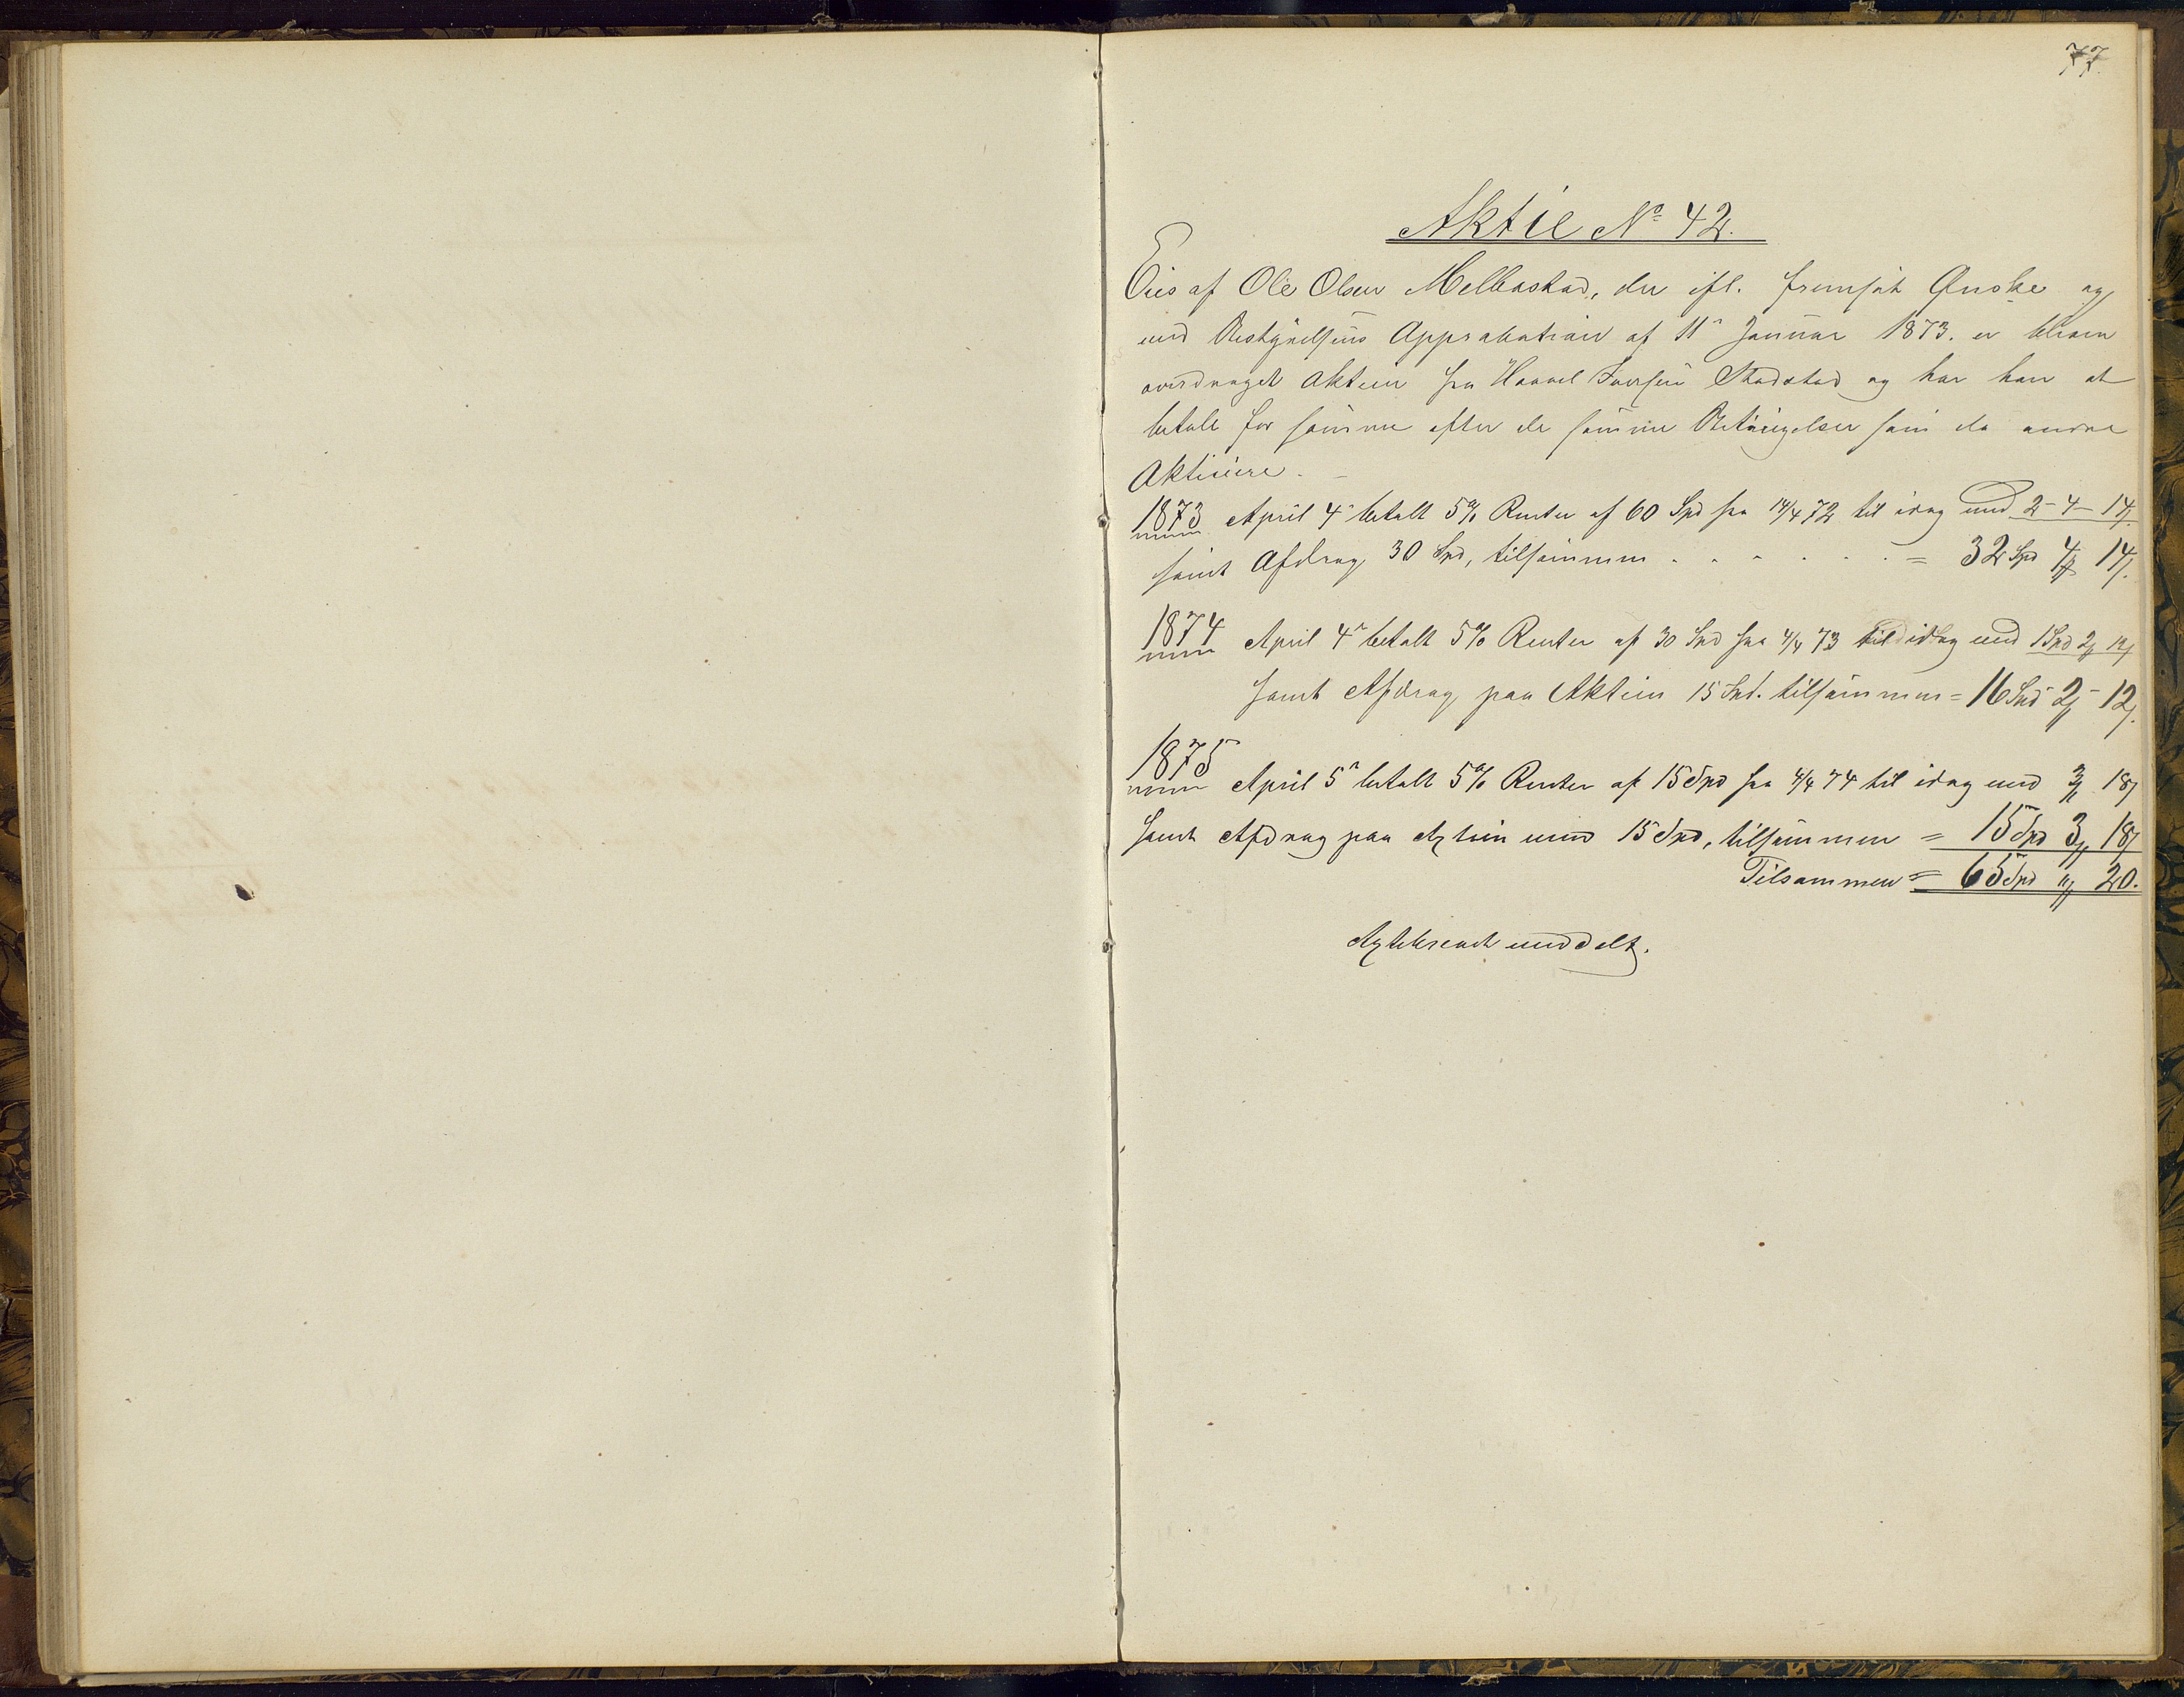 77.
Aktie No 42.
Eies af Ole Olsen Melbostad, der ifl. fremsat Ønske og
med Bestyrelsens Approbation af 11te Januar 1873. er bleven
overdraget Aktien fra Haavel Iversen Stadstad og har han at
betale for samme efter de samme Betingelser som de andre
Aktieiere.
1873 April 4de betalt 5% Renter af 60 Spd fra 14/4 72 til idag med 2-4-14
samt Afdrag 30 Spd, tilsammen . . . . . . = 32 Spd 4 14
1874 April 4de betalt 5% Renter af 30 Spd fra 4/4 73 til idag med 1 Spd 2 12
samt Afdrag paa Aktien 15 Spd. tilsammen = 16 Spd 2 - 12
1875 April 5te betalt 5% Renter af 15 Spd fra 4/4 74 til idag med 3 18
samt Afdrag paa Aktien med 15 Spd, tilsammen = 15 Spd 3 18
Tilsammen = 65 Spd " 20.
meddelt.